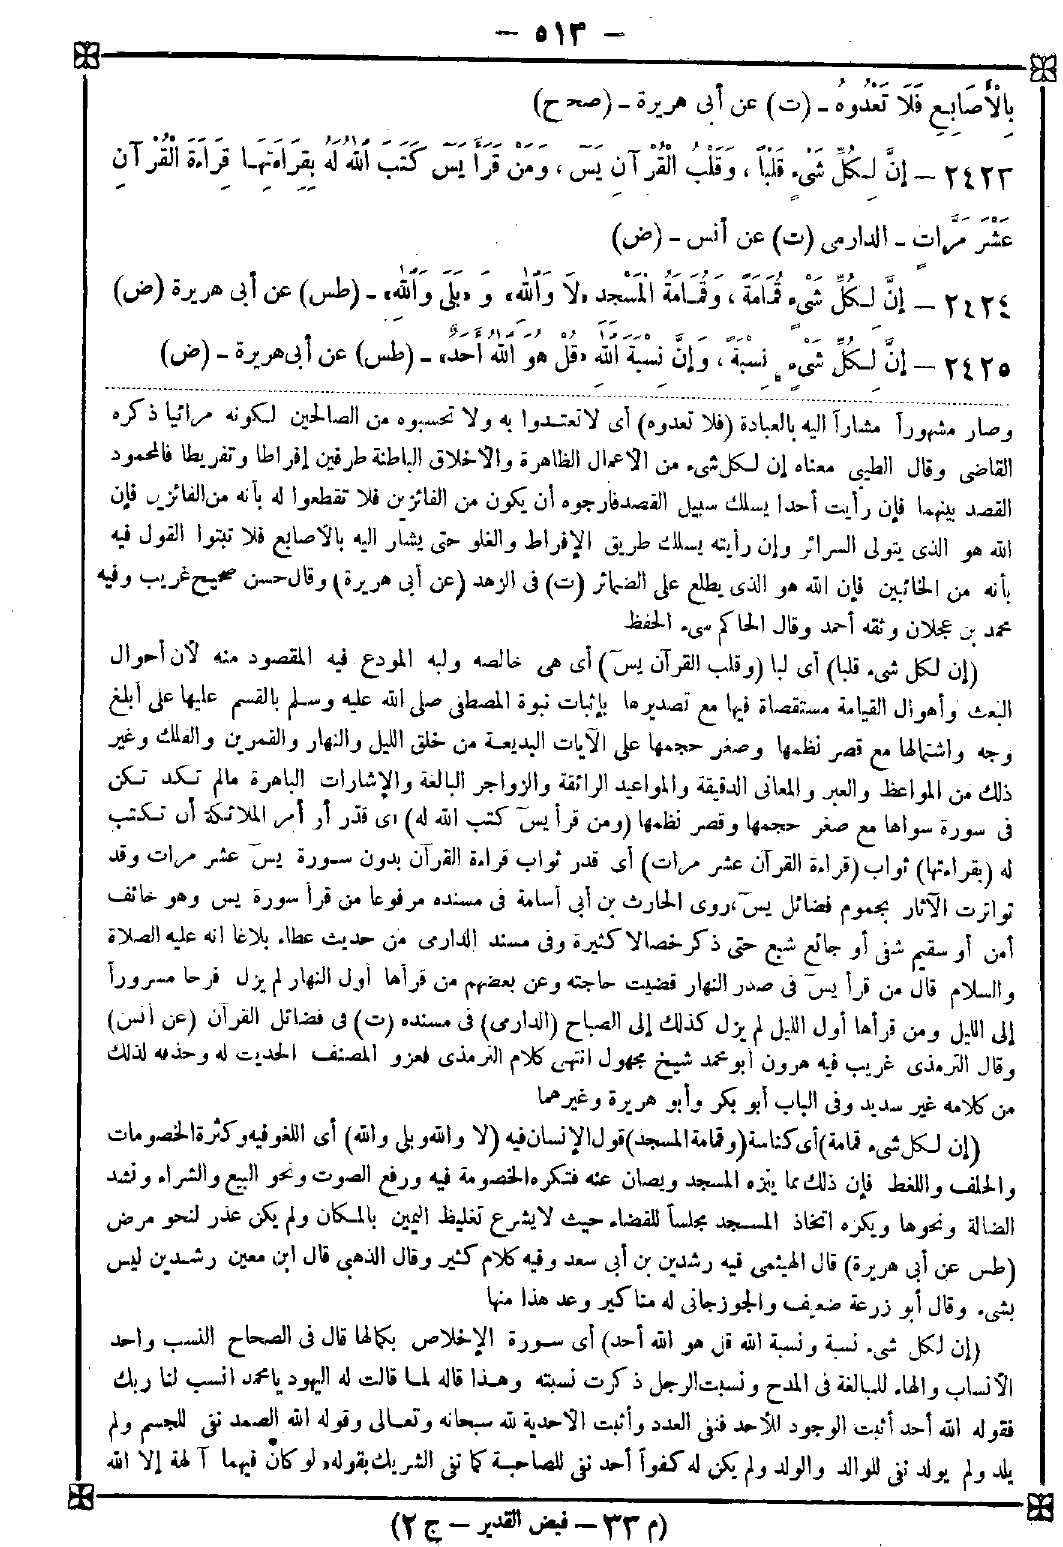 — ٥١٣ —
بِالْأَصَابِعِ فَلَا تَعْدُوهُ ـ (ت) عن أبى هريرة ـ (صح ح)
٢٤٢٣ — إنَّ لِكُلِّ شَىْءٍ قَلْبًا ، وَقَلْبُ الْقُرْآنِ يٰسَ ، وَمَنْ قَرَأَ يٰسَ كَتَبَ اللّٰهُ لَهُ بِقِرَاءَتِهَا قِرَاءَةَ الْقُرْآنِ
عَشْرَ مَرَّاتٍ ـ الدارمى (ت) عن أنس ـ (ض)
٢٤٢٤ — إنَّ لِكُلِّ شَىْءٍ قُمَامَةً ، وَقُمَامَةُ الْمَسْجِدِ «لَا وَاللّٰهِ» وَ «بَلَى وَاللّٰهِ» ـ (طس) عن أبى هريرة (ض)
٢٤٢٥ — إنَّ لِكُلِّ شَىْءٍ نِسْبَةً ، وَإنَّ نِسْبَةَ اللّٰهِ «قُلْ هُوَ اللّٰهُ أَحَدٌ» ـ (طس) عن أبى هريرة ـ (ض)
وصار مشهوراً مشاراً اليه بالعبادة (فلا تعدوه) أى لا تعتدوا به ولا تحسبوه من الصالحين لكونه مرائيا ذكره
القاضى وقال الطيبى معناه إن لكل شىء من الأعمال الظاهرة والأخلاق الباطنة طرفين إفراطا وتفريطا فالمحمود
القصد بينهما فإن رأيت أحدا يسلك سبيل القصد فارجوه أن يكون من الفائزين فلا تقطعوا له بأنه من الفائزين فإن
الله هو الذى يتولى السرائر وإن رأيته يسلك طريق الإفراط والغلو حتى يشار اليه بالأصابع فلا تبتوا القول فيه
بأنه من الخائبين فإن الله هو الذى يطلع على الضمائر (ت) فى الزهد (عن أبى هريرة) وقال حسن صحيح غريب وفيه
محمد بن عجلان وثقه أحمد وقال الحاكم سىء الحفظ
(إن لكل شىء قلبا) أى لبا (وقلب القرآن يسٓ) أى هى خالصه ولبه المودع فيه المقصود منه لأن أحوال
البعث وأهوال القيامة مستقصاة فيها مع تصديرها بإثبات نبوة المصطفى صلى الله عليه وسلم بالقسم عليها على أبلغ
وجه واشتمالها مع قصر نظمها وصغر حجمها على الآيات البديعة من خلق الليل والنهار والقمرين والفلك وغير
ذلك من المواعظ والعبر والمعانى الدقيقة والمواعيد الرائقة والزواجر البالغة والإشارات الباهرة مالم تكد تكن
فى سورة سواها مع صغر حجمها وقصر نظمها (ومن قرأ يسٓ كتب الله له) أى قدر أو أمر الملائكة أن تكتب
له (بقراءتها) ثواب (قراءة القرآن عشر مرات) أى قدر ثواب قراءة القرآن بدون سورة يسٓ عشر مرات وقد
تواترت الآثار بجموم فضائل يسٓ، روى الحارث بن أبى أسامة فى مسنده مرفوعا من قرأ سورة يس وهو خائف
أمن أو سقيم شفى أو جائع شبع حتى ذكر خصالا كثيرة وفى مسند الدارمى من حديث عطاء بلاغا انه عليه الصلاة
والسلام قال من قرأ يسٓ فى صدر النهار قضيت حاجته وعن بعضهم من قرأها أول النهار لم يزل فرحا مسروراً
إلى الليل ومن قرأها أول الليل لم يزل كذلك إلى الصباح (الدارمى) فى مسنده (ت) فى فضائل القرآن (عن أنس)
وقال الترمذى غريب فيه هرون أبو محمد شيخ مجهول انتهى كلام الترمذى فعزو المصنف الحديث له وحذفه لذلك
من كلامه غير سديد وفى الباب أبو بكر وأبو هريرة وغيرهما
(إن لكل شىء قمامة) أى كناسة (وقمامة المسجد) قول الإنسان فيه (لا والله وبلى والله) أى اللغو فيه وكثرة الخصومات
والحلف واللغط فإن ذلك مما ينزه المسجد ويصان عنه فتكره الخصومة فيه ورفع الصوت ونحو البيع والشراء ونشد
الضالة ونحوها ويكره اتخاذ المسجد مجلساً للقضاء حيث لا يشرع تغليظ اليمين بالمكان ولم يكن عذر لنحو مرض
(طس عن أبى هريرة) قال الهيثمى فيه رشدين بن أبى سعد وفيه كلام كثير وقال الذهبى قال ابن معين رشدين ليس
بشىء وقال أبو زرعة ضعيف والجوزجانى له مناكير وعد هذا منها
(إن لكل شىء نسبة ونسبة الله قل هو الله أحد) أى سورة الإخلاص بكمالها قال فى الصحاح النسب واحد
الأنساب والهاء للمبالغة فى المدح ونسبت الرجل ذكرت نسبته وهذا قاله لما قالت له اليهود يا محمد انسب لنا ربك
فقوله الله أحد أثبت الوجود للأحد فنفى العدد وأثبت الأحدية لله سبحانه وتعالى وقوله الله الصمد نفى للجسم ولم
يلد ولم يولد نفى للوالد والولد ولم يكن له كفواً أحد نفى للصاحبة كما نفى الشريك بقوله «لو كان فيهما آلهة إلا الله
(م ٣٣ — فيض القدير — ج ٢)